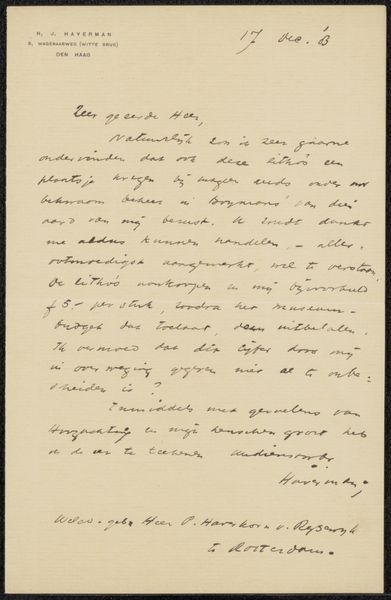 H. J. HAVERMAN
8, WAGENAARWEG (WITTE BRUG)
DEN HAAG
17 Dec. '13
Zeer geeerde Heer,
Natuurlijk zou ik zeer gaarne
ondervinden dat ook deze litho's een
plaatsje kregen bij uw
bekwaam beheer in Boymans' van dien
aard van mij berust. U zoudt
me aldus kunnen handelen, – alles
ootmoedigst aangemerkt, wel te verstaan.
De litho's verkoopen en mij bijvoorbeeld
f 5.- per stuk, zoodra het museum-
budget dat toelaat, uitbetalen.
Ik vermoed dat dit cijfer door mij
in overweging gegeven niet al te onbe-
scheiden is?
Inmiddels met gevoelens van
Hoogachting en mijn groet heb
ik de eer te teekenen
Haverman,
Heer P. Haverkorn v. Rijsewijk
te Rotterdam.